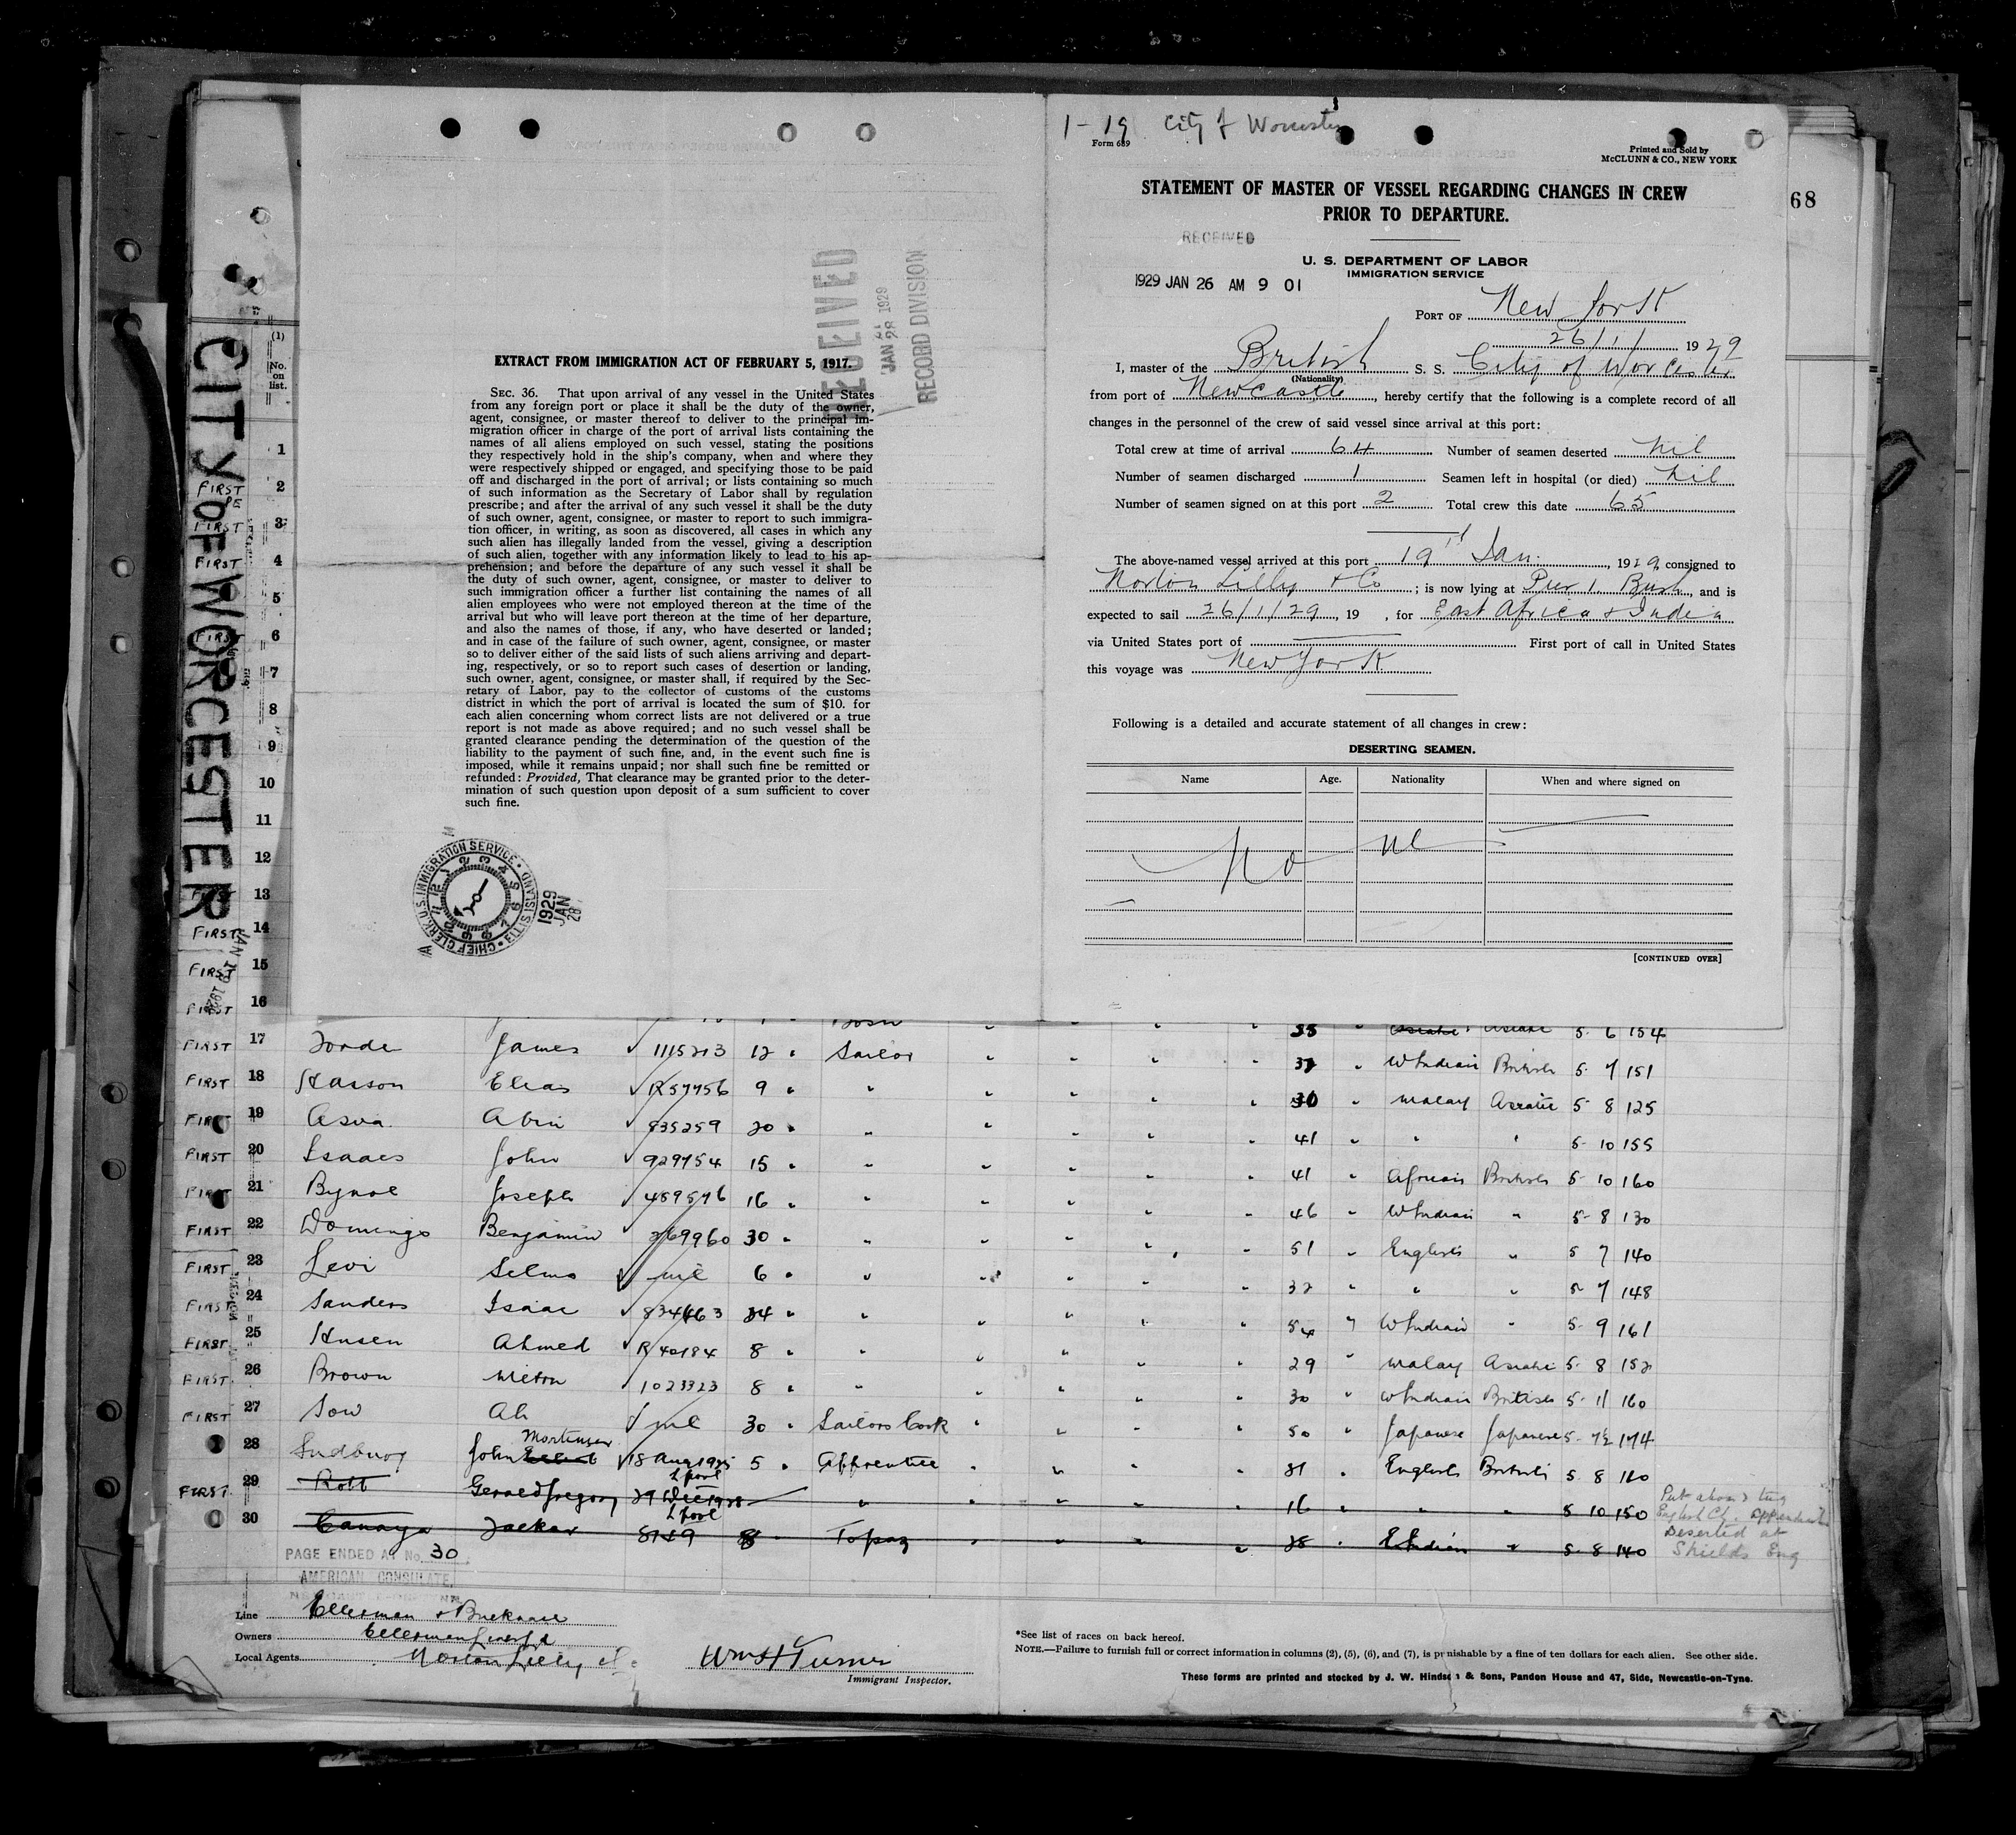 1-19 City of Worcester
Form 689
Printed and Sold by
McCLUNN & CO., NEW YORK
STATEMENT OF MASTER OF VESSEL REGARDING CHANGES IN CREW
PRIOR TO DEPARTURE.
RECEIVED
U. S. DEPARTMENT OF LABOR
IMMIGRATION SERVICE
1929 JAN 26 AM 9 01
PORT OF New York
26/1/ 1929
I, master of the British S. S. City of Worcester
(Nationality)
from port of Newcastle, hereby certify that the following is a complete record of all
changes in the personnel of the crew of said vessel since arrival at this port:
Total crew at time of arrival 64 Number of seamen deserted Nil
Number of seamen discharged 1 Seamen left in hospital (or died) Nil
Number of seamen signed on at this port 2 Total crew this date 65
The above-named vessel arrived at this port 19th Jan. 1929, consigned to
Norton Lilly & Co; is now lying at Pier 1 Bush, and is
expected to sail 26/1/29, 19 , for East Africa & India
via United States port of First port of call in United States
this voyage was New York
Following is a detailed and accurate statement of all changes in crew:
DESERTING SEAMEN.
Name Age. Nationality When and where signed on
None
[CONTINUED OVER]
68
RECEIVED
JAN 28 1929
RECORD DIVISION
EXTRACT FROM IMMIGRATION ACT OF FEBRUARY 5, 1917.
SEC. 36. That upon arrival of any vessel in the United States
from any foreign port or place it shall be the duty of the owner,
agent, consignee, or master thereof to deliver to the principal im-
migration officer in charge of the port of arrival lists containing the
names of all aliens employed on such vessel, stating the positions
they respectively hold in the ship's company, when and where they
were respectively shipped or engaged, and specifying those to be paid
off and discharged in the port of arrival; or lists containing so much
of such information as the Secretary of Labor shall by regulation
prescribe; and after the arrival of any such vessel it shall be the duty
of such owner, agent, consignee, or master to report to such immigra-
tion officer, in writing, as soon as discovered, all cases in which any
such alien has illegally landed from the vessel, giving a description
of such alien, together with any information likely to lead to his ap-
prehension; and before the departure of any such vessel it shall be
the duty of such owner, agent, consignee, or master to deliver to
such immigration officer a further list containing the names of all
alien employees who were not employed thereon at the time of the
arrival but who will leave port thereon at the time of her departure,
and also the names of those, if any, who have deserted or landed;
and in case of the failure of such owner, agent, consignee, or master
so to deliver either of the said lists of such aliens arriving and depart-
ing, respectively, or so to report such cases of desertion or landing,
such owner, agent, consignee, or master shall, if required by the Sec-
retary of Labor, pay to the collector of customs of the customs
district in which the port of arrival is located the sum of $10. for
each alien concerning whom correct lists are not delivered or a true
report is not made as above required; and no such vessel shall be
granted clearance pending the determination of the question of the
liability to the payment of such fine, and, in the event such fine is
imposed, while it remains unpaid; nor shall such fine be remitted or
refunded: Provided, That clearance may be granted prior to the deter-
mination of such question upon deposit of a sum sufficient to cover
such fine.
CHIEF CLERK, U.S. IMMIGRATION SERVICE • ELLIS ISLAND •
1929 JAN 28
CITY OF WORCESTER
JAN 19 1929
(1)
No. on list.
1
FIRST 2
FIRST 3
FIRST 4
5
FIRST 6
7
8
9
10
11
12
FIRST 13
FIRST 14
FIRST 15
FIRST 16
Bosn 35 Asiatic 5 6 154
FIRST 17 Forde James 1115213 12 " Sailor 37 " W Indian British 5 7 151
FIRST 18 Hasson Elias R57756 9 " " 30 " Malay Asiatic 5 8 125
FIRST 19 Asva Abin 835259 20 " " 41 " " " 5 10 155
FIRST 20 Isaacs John 929754 15 " " 41 " African British 5 10 160
FIRST 21 Bynoe Joseph 459576 16 " " 46 " W Indian " 5 8 130
FIRST 22 Domingo Benjamin 269960 30 " " 51 " English " 5 7 140
FIRST 23 Levi Selmo nil 6 " " 32 " " " 5 7 148
FIRST 24 Sanders Isaac 834663 34 " " 54 " W Indian " 5 9 161
FIRST 25 Husen Ahmed R40184 8 " " 29 " Malay Asiatic 5 8 152
FIRST 26 Brown Milton 1023323 8 " " 30 " W Indian British 5 11 160
FIRST 27 Sow Ah nil 30 " Sailors Cook 50 " Japanese Japanese 5 7½ 174
28 John Mortimer 18 Aug 1925 L'pool 5 " Apprentice 21 " English British 5 8 160
FIRST 29 Rott Gerald Gregory 29 Dec 1928 L'pool " 16 " " " 5 10 150
30 Canaya Jackar 8749 8 " Topaz 28 " E Indian " 5 8 140
Deserted at
Shields Eng
PAGE ENDED AT No. 30
AMERICAN CONSULATE,
Line Ellerman & Bucknall
Owners Ellerman Lines Ld
Local Agents Norton Lilly
Wm H Turner
Immigrant Inspector.
*See list of races on back hereof.
NOTE.—Failure to furnish full or correct information in columns (2), (5), (6), and (7), is punishable by a fine of ten dollars for each alien. See other side.
These forms are printed and stocked by J. W. Hindson & Sons, Pandon House and 47, Side, Newcastle-on-Tyne.